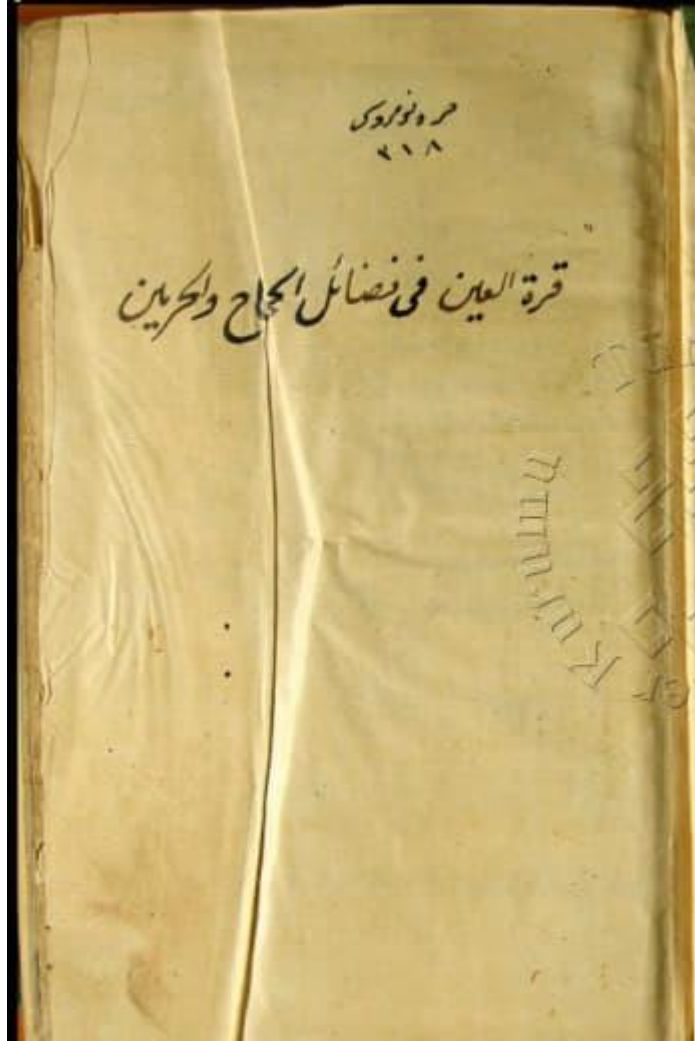 صره نومروسى
٣١٨
قرة العين فى فضائل الحجاج والحرمين